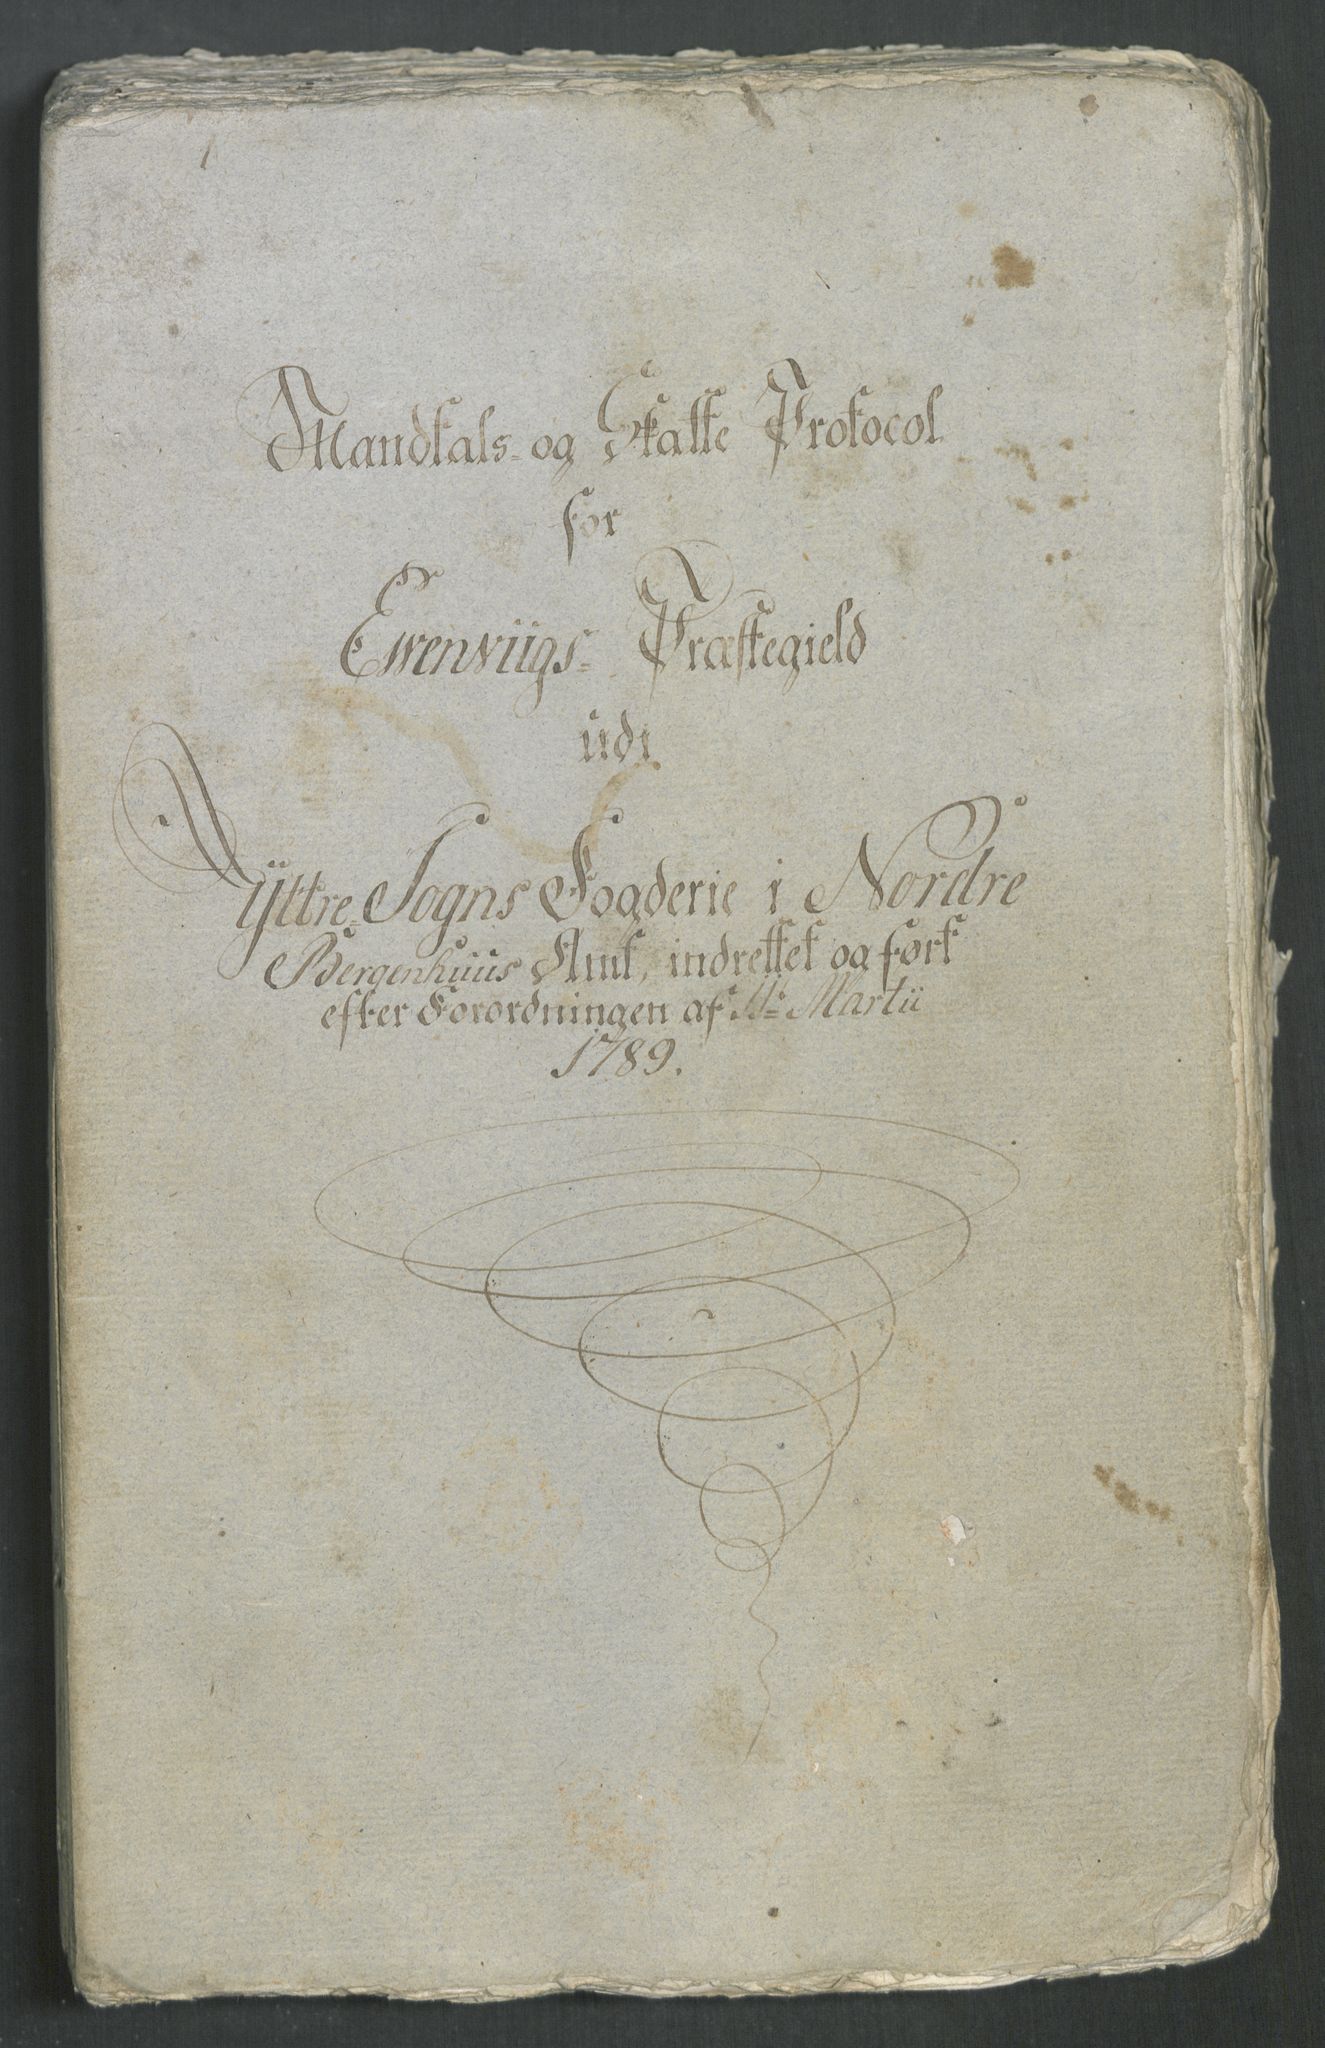 Mandtals- og Skatte Protocol
for
Ewenviigs- Præstegield
udi
Yttre-Sogns Fogderie i Nordre
Bergenhuus Amt, indrettet og ført
efter Forordningen af Martii
1789.